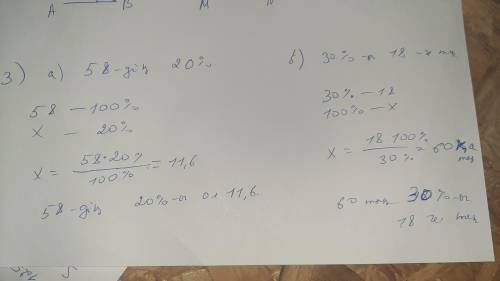 A B M N
3) a) 58-дің 20%
58 — 100%
x — 20%
x = 58·20% / 100% = 11,6
58-дің 20%-ы ол 11,6
b) 30%-ы 18-ге тең
30% — 18
100% — x
x = 18·100% / 30% = 60
60 тең 30%-ы
18 ге тең